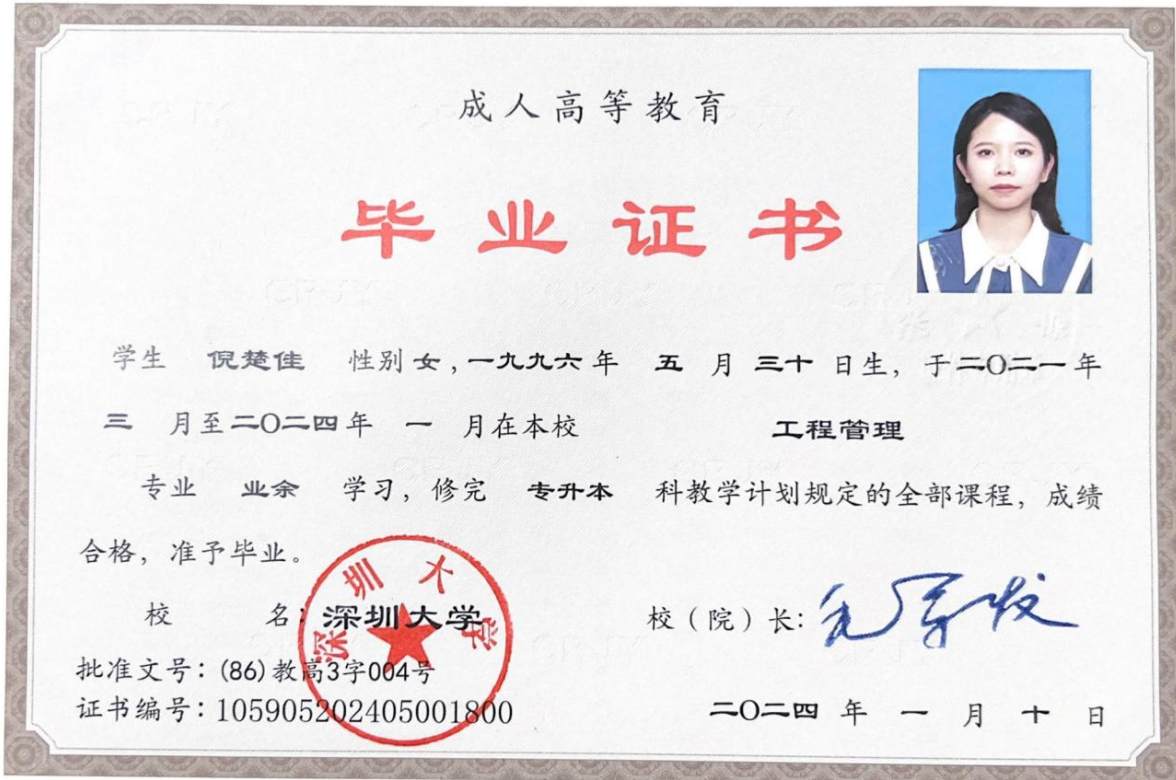 成人高等教育
毕业证书
学生 倪楚佳 性别 女，一九九六年 五 月 三十 日生，于二〇二一年
三 月至二〇二四年 一 月在本校 工程管理
专业 业余 学习，修完 专升本 科教学计划规定的全部课程，成绩
合格，准予毕业。
深圳大学
校 名：深圳大学 校（院）长：毛军发
批准文号：(86)教高3字004号
证书编号：105905202405001800 二〇二四 年 一 月 十 日